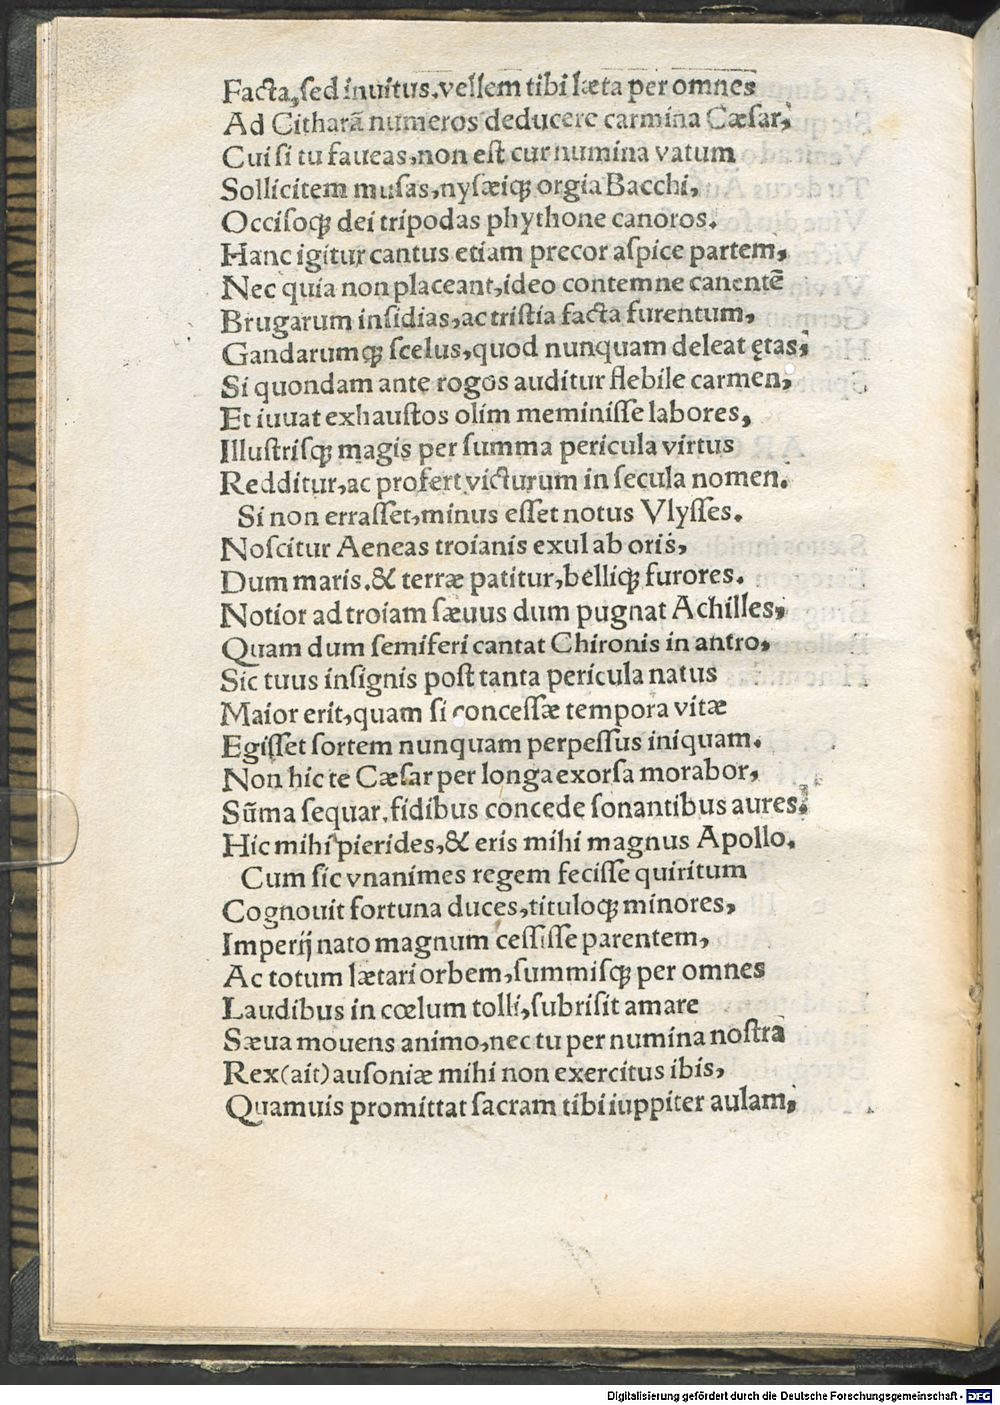 Facta,ſed inuitus.vellem tibi læta per omnes
Ad Citharā numeros deducere carmina Cæſar,
Cui ſi tu faueas,non eſt cur numina vatum
Sollicitem muſas,nyſæiqꝫ orgia Bacchi,
Occiſoqꝫ dei tripodas phythone canoros.
Hanc igitur cantus etiam precor aſpice partem,
Nec quia non placeant,ideo contemne canentē
Brugarum inſidias,ac triſtia facta furentum,
Gandarumqꝫ ſcelus,quod nunquam deleat ętas,
Si quondam ante rogos auditur flebile carmen,
Et iuuat exhauſtos olim meminiſſe labores,
Illuſtriſqꝫ magis per ſumma pericula virtus
Redditur,ac profert victurum in ſecula nomen.
Si non erraſſet,minus eſſet notus Vlyſſes.
Noſcitur Aeneas troianis exul ab oris,
Dum maris.& terræ patitur,belliqꝫ furores.
Notior ad troiam ſæuus dum pugnat Achilles,
Quam dum ſemiferi cantat Chironis in antro,
Sic tuus inſignis poſt tanta pericula natus
Maior erit,quam ſi conceſſæ tempora vitæ
Egiſſet ſortem nunquam perpeſſus iniquam.
Non hic te Cæſar per longa exorſa morabor,
Sūma ſequar.fidibus concede ſonantibus aures.
Hic mihi pierides,& eris mihi magnus Apollo.
Cum ſic vnanimes regem feciſſe quiritum
Cognouit fortuna duces,tituloqꝫ minores,
Imperij nato magnum ceſſiſſe parentem,
Ac totum lætari orbem,ſummiſqꝫ per omnes
Laudibus in cœlum tolli,ſubriſit amare
Sæua mouens animo,nec tu per numina noſtra
Rex(ait)auſoniæ mihi non exercitus ibis,
Quamuis promittat ſacram tibi iuppiter aulam,
Digitalisierung gefördert durch die Deutsche Forschungsgemeinschaft - DFG